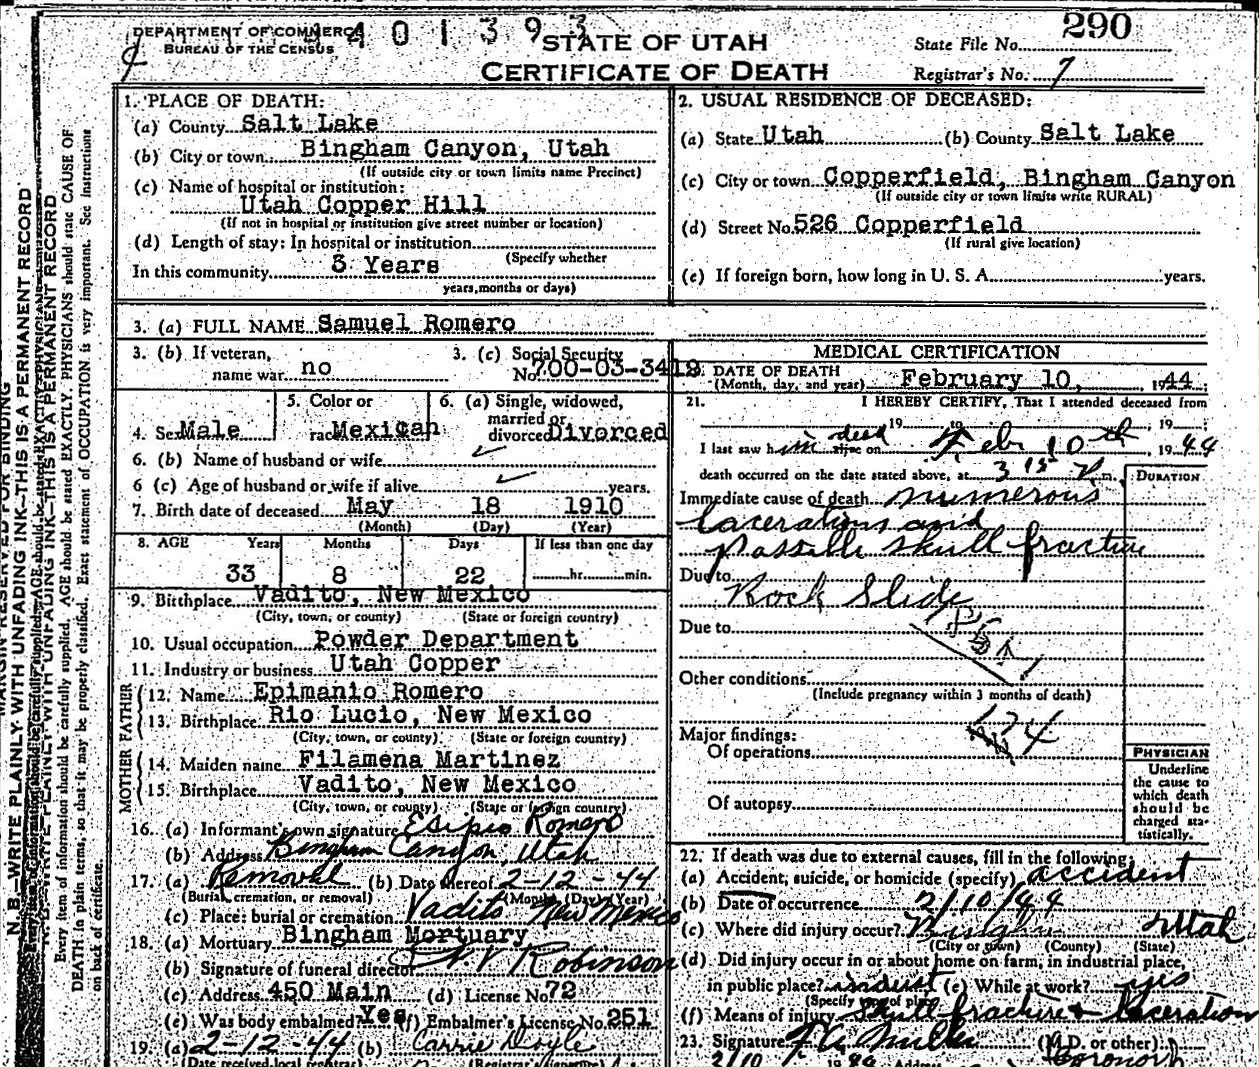 DEPARTMENT OF COMMERCE
BUREAU OF THE CENSUS
401393
STATE OF UTAH
CERTIFICATE OF DEATH
290
State File No.
Registrar's No. 7
1. PLACE OF DEATH:
(a) County Salt Lake
(b) City or town Bingham Canyon, Utah
(If outside city or town limits name Precinct)
(c) Name of hospital or institution:
Utah Copper Hill
(If not in hospital or institution give street number or location)
(d) Length of stay: In hospital or institution
(Specify whether
In this community 3 Years
years, months or days)
2. USUAL RESIDENCE OF DECEASED:
(a) State Utah (b) County Salt Lake
(c) City or town Copperfield, Bingham Canyon
(If outside city or town limits write RURAL)
(d) Street No. 526 Copperfield
(If rural give location)
(e) If foreign born, how long in U. S. A. years.
3. (a) FULL NAME Samuel Romero
3. (b) If veteran, name war no
3. (c) Social Security No. 700-03-3419
4. Sex Male
5. Color or race Mexican
6. (a) Single, widowed, married or divorced Divorced
6. (b) Name of husband or wife
6 (c) Age of husband or wife if alive years.
7. Birth date of deceased May 18 1910
(Month) (Day) (Year)
8. AGE Years Months Days If less than one day
33 8 22 hr. min.
9. Birthplace Vadito, New Mexico
(City, town, or county) (State or foreign country)
10. Usual occupation Powder Department
11. Industry or business Utah Copper
FATHER
12. Name Epimanio Romero
13. Birthplace Rio Lucio, New Mexico
(City, town, or county) (State or foreign country)
MOTHER
14. Maiden name Filamena Martinez
15. Birthplace Vadito, New Mexico
(City, town, or county) (State or foreign country)
16. (a) Informant's own signature Esipio Romero
(b) Address Bingham Canyon, Utah
17. (a) Removal (b) Date thereof 2-12-44
(Burial, cremation, or removal) (Month) (Day) (Year)
(c) Place: burial or cremation Vadito New Mexico
18. (a) Mortuary Bingham Mortuary
(b) Signature of funeral director Robinson
(c) Address 450 Main (d) License No. 72
(e) Was body embalmed? Yes (f) Embalmer's License No. 251
19. (a) 2-12-44 (b) Carrie Doyle
(Date received local registrar) (Registrar's signature)
MEDICAL CERTIFICATION
DATE OF DEATH
(Month, day, and year) February 10, 1944
21. I HEREBY CERTIFY, That I attended deceased from
19 19
I last saw him dead alive on Feb 10th, 1944
death occurred on the date stated above, at 3 15 P m.
DURATION
Immediate cause of death numerous
lacerations and
possible skull fracture
Due to
Rock Slide
Due to
Other conditions
(Include pregnancy within 3 months of death)
Major findings:
Of operations
Of autopsy
PHYSICIAN
Underline
the cause to
which death
should be
charged sta-
tistically.
22. If death was due to external causes, fill in the following:
(a) Accident, suicide, or homicide (specify) accident
(b) Date of occurrence 2/10/44
(c) Where did injury occur? Bingham Utah
(City or town) (County) (State)
(d) Did injury occur in or about home on farm, in industrial place,
in public place? indust (e) While at work? yes
(Specify type of place)
(f) Means of injury Skull fracture + laceration
23. Signature (M.D. or other) Coroner
2/10 Address
N. B.—WRITE PLAINLY WITH UNFADING INK—THIS IS A PERMANENT RECORD
Every item of information should be carefully supplied. AGE should be stated EXACTLY. PHYSICIANS should state CAUSE OF
DEATH in plain terms, so that it may be properly classified. Exact statement of OCCUPATION is very important. See instructions
on back of certificate.